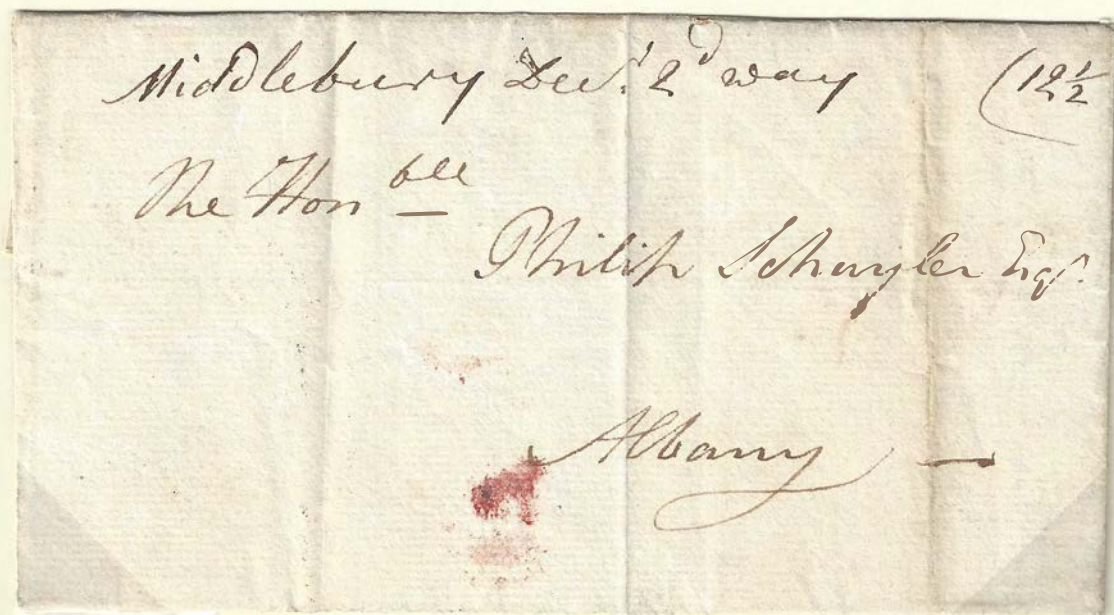 Middlebury Decr. 2d way (12½
The Honble
Philip Schuyler Esqr.
Albany —